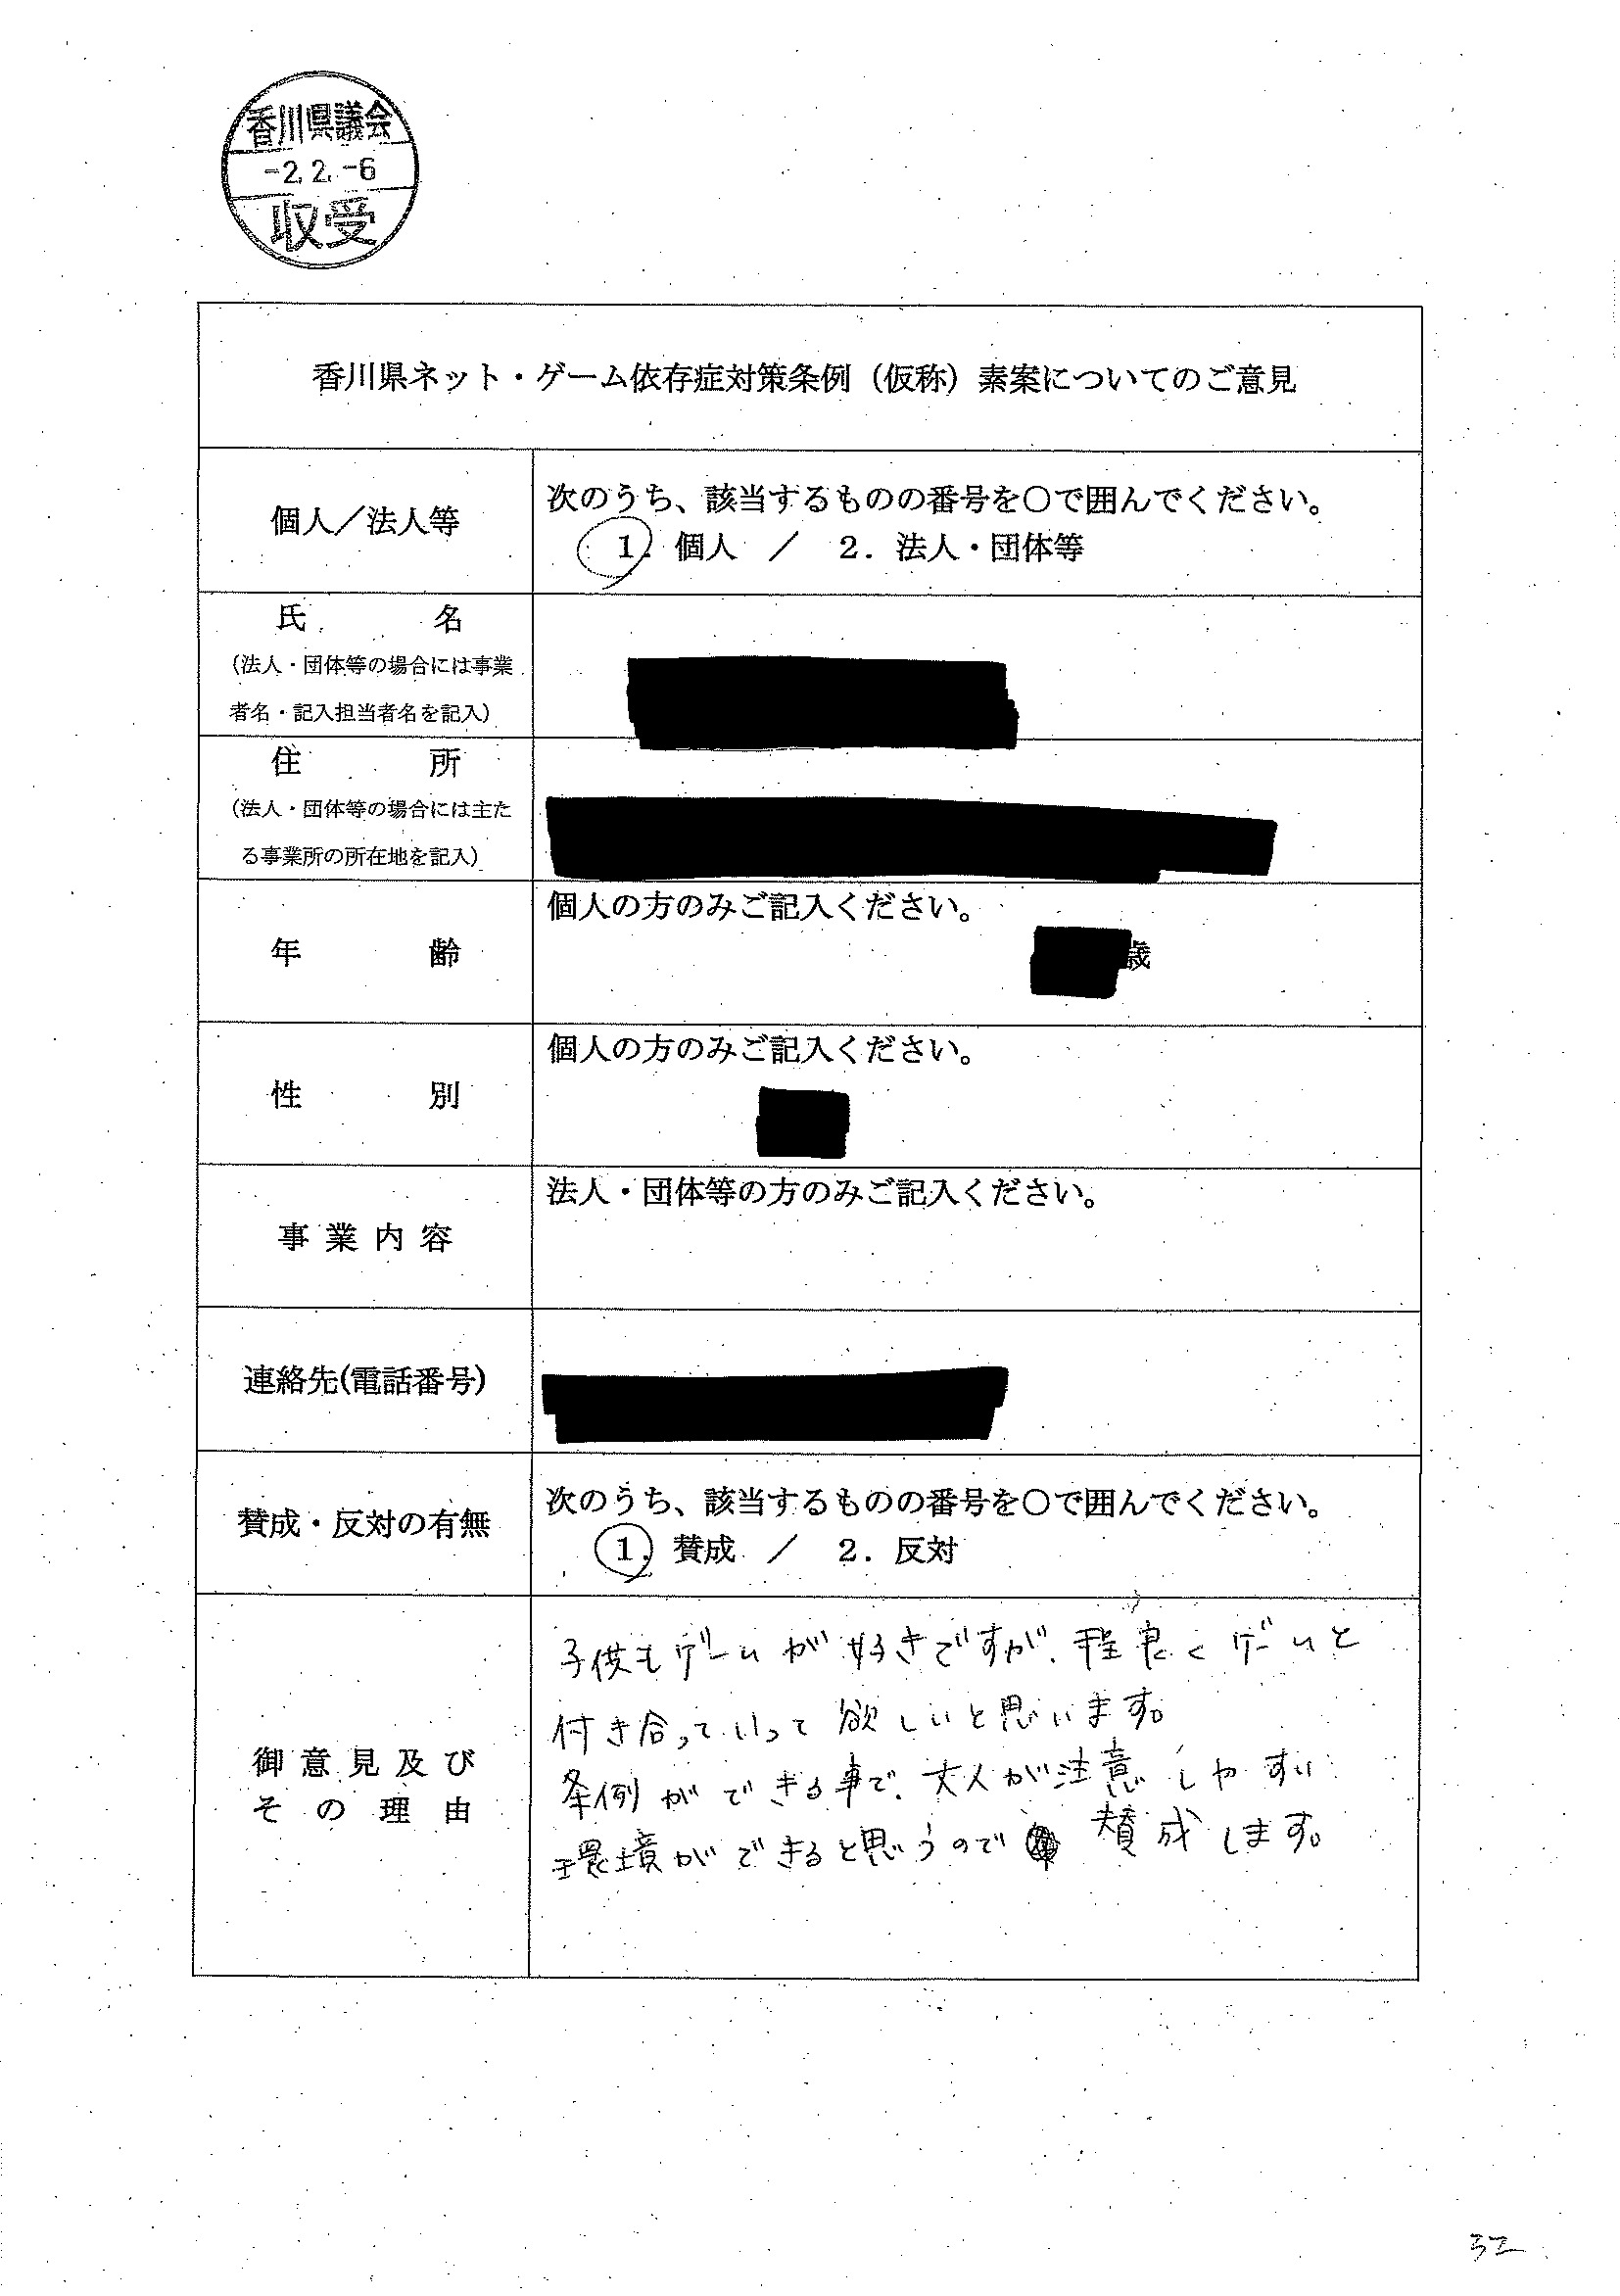 香川県議会
-2.2.-6
収受
香川県ネット・ゲーム依存症対策条例（仮称）素案についてのご意見
個人／法人等
次のうち、該当するものの番号を○で囲んでください。
1. 個人 ／ 2. 法人・団体等
氏 名
（法人・団体等の場合には事業
者名・記入担当者名を記入）
住 所
（法人・団体等の場合には主た
る事業所の所在地を記入）
年 齢
個人の方のみご記入ください。
歳
性 別
個人の方のみご記入ください。
事業内容
法人・団体等の方のみご記入ください。
連絡先(電話番号)
賛成・反対の有無
次のうち、該当するものの番号を○で囲んでください。
1. 賛成 ／ 2. 反対
御意見及び
その理由
子供もゲームが好きですが、程良くゲームと
付き合っていって欲しいと思います。
条例ができる事で、大人が注意しやすい
環境ができると思うので 賛成します。
32